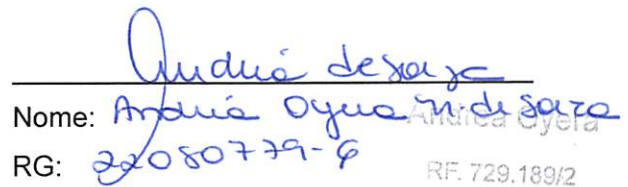 Andréa de Souza
Nome: Andréa Oyera M. de Souza
Andrea Oyera
RG: 22080779-6
RF. 729.189/2